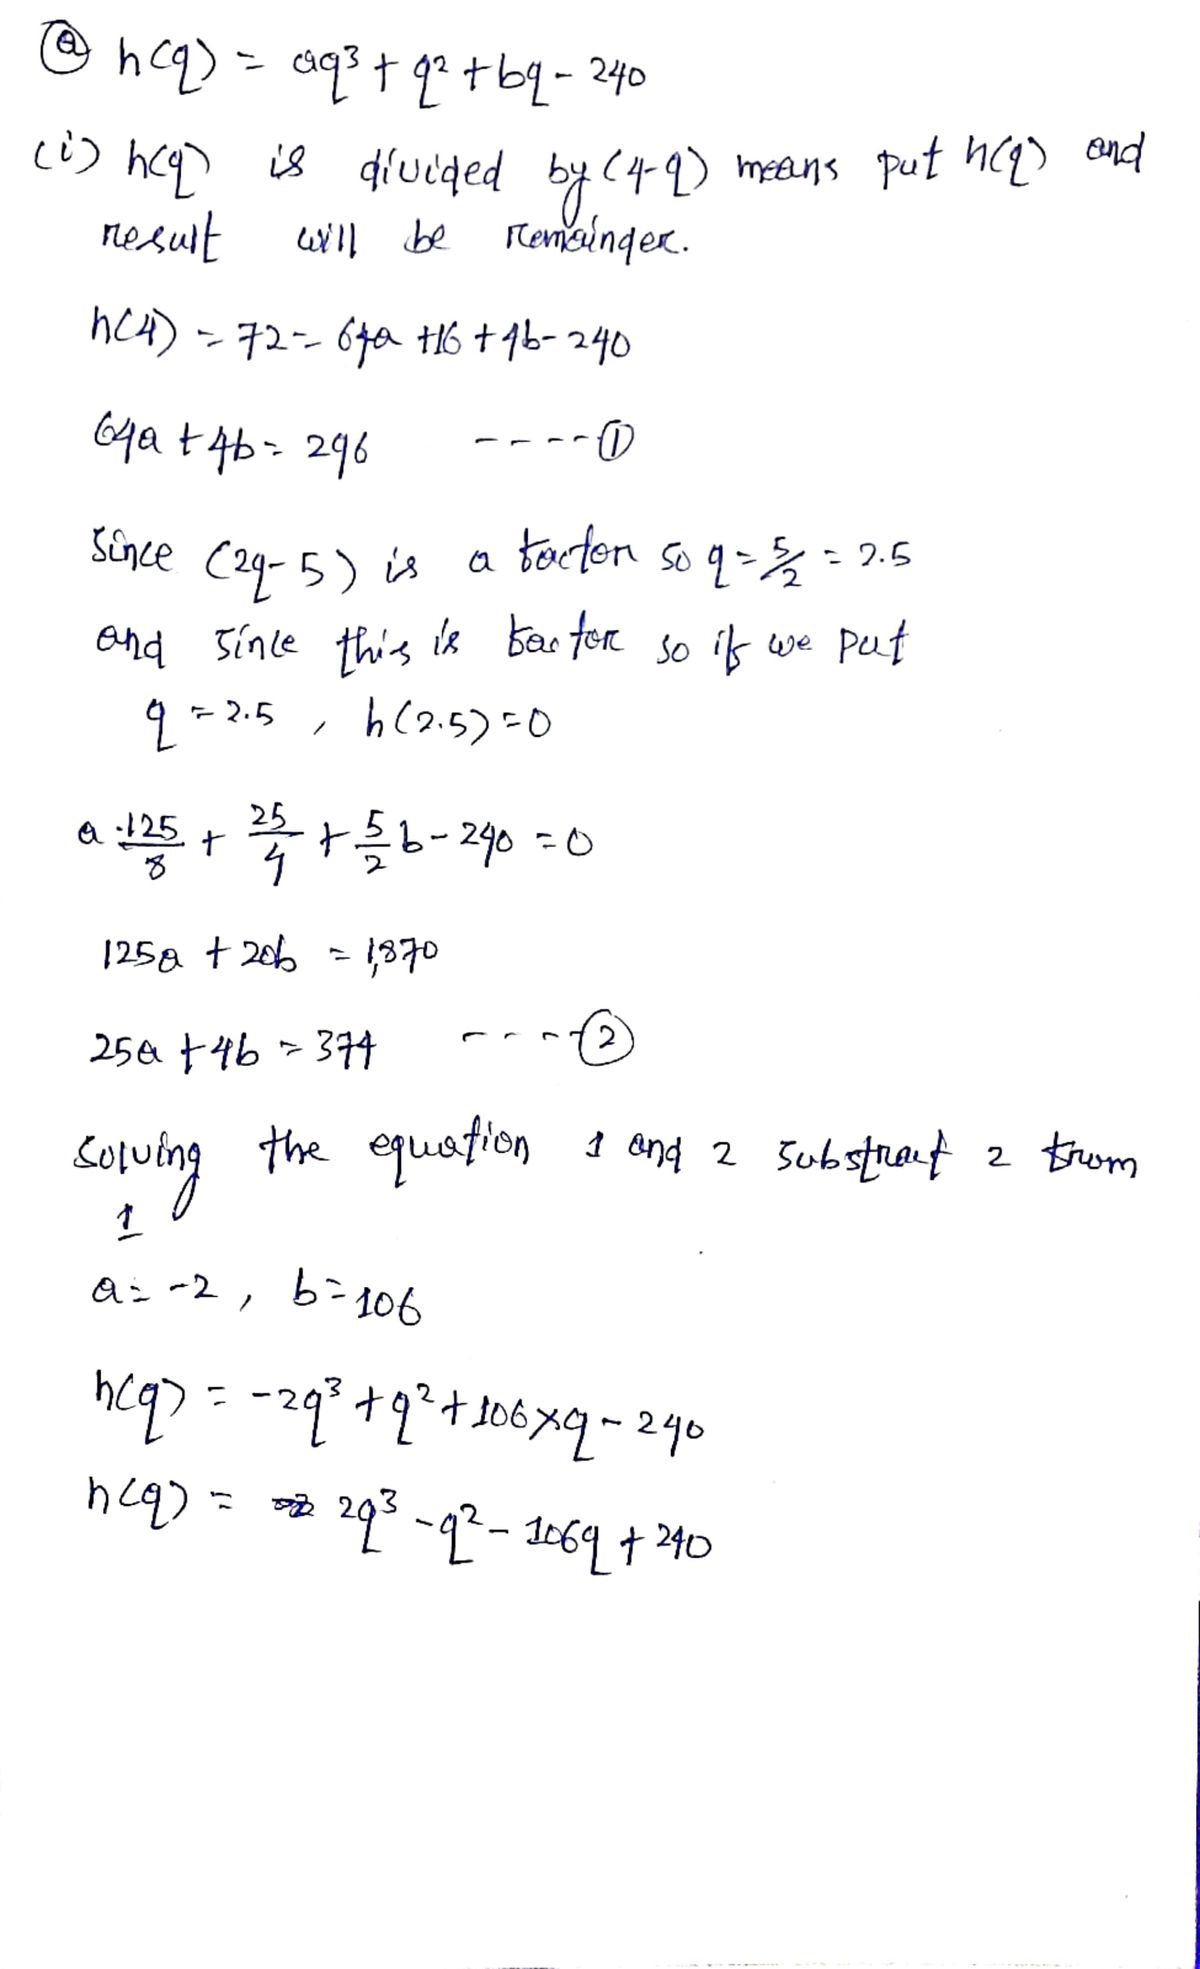 (a) h(q) = aq³ + q² + bq - 240
(i) h(q) is divided by (4-q) means put h(q) and
result will be remainder.
h(4) = 72 = 64a + 16 + 4b - 240
64a + 4b = 296 ----①
Since (2q-5) is a factor so q = 5/2 = 2.5
and since this is factor so if we put
q = 2.5 , h(2.5) = 0
a·125/8 + 25/4 + 5/2 b - 240 = 0
125a + 20b = 1,870
25a + 4b = 374 ----②
Solving the equation 1 and 2 substract 2 from
1
a = -2 , b = 106
h(q) = -2q³ + q² + 106×q - 240
h(q) = 2q³ - q² - 106q + 240